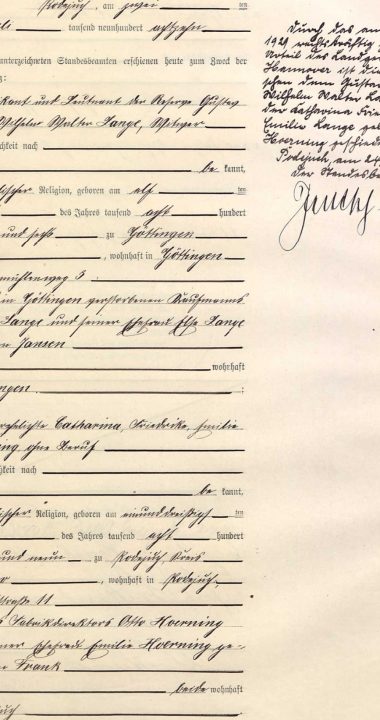 Podejuch, am zwei ten
tausend neunhundert achtzehn.
unterzeichneten Standesbeamten erschienen heute zum Zweck der
:
kant und Leutnant der Reserve Gustav
Wilhelm Walter Lange, Witwer
ichkeit nach
be kannt,
ischer Religion, geboren am elf ten
des Jahres tausend acht hundert
und sechs zu Göttingen
, wohnhaft in Göttingen
mühlenweg 3 :
in Göttingen verstorbenen Kaufmanns
Lange und seiner Ehefrau Else Lange
Jansen
wohnhaft
ngen. ;
Catharina, Friedrike, Emilie
ing ohne Beruf
chkeit nach
be kannt,
ischer Religion, geboren am einunddreißigst ten
des Jahres tausend acht hundert
und neun zu Podejuch, Kreis
, wohnhaft in Podejuch,
straße 11
Fabrikdirektors Otto Hoerning
ner Ehefrau Emilie Hoerning ge-
Frank
beide wohnhaft
uch
Durch das am
rechtskräftig
Urteil des Landger
Hannover ist die
dem Gustav
Wilhelm Walter La
der Katharina Frie
Emilie Lange geb
Hoerning geschiede
Podejuch, am 24
Der Standesbe